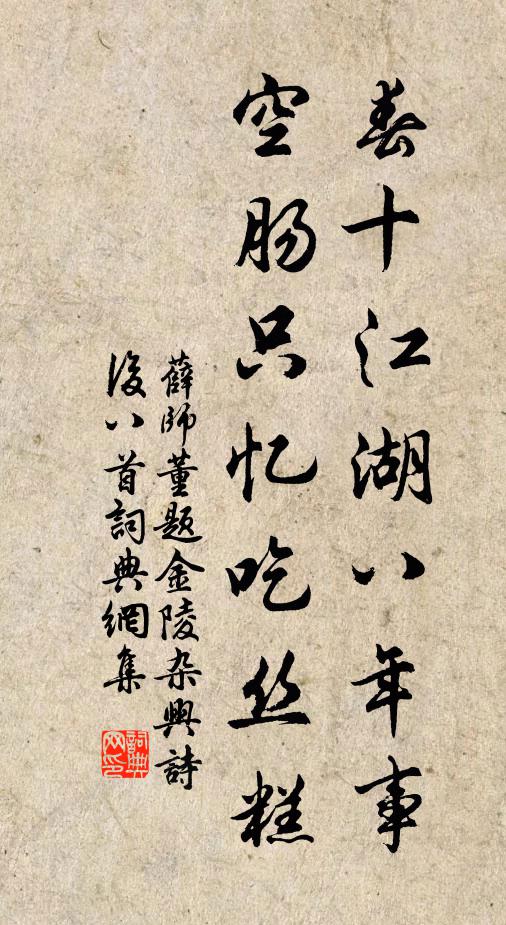 春十江湖八年事
空肠只忆吃丝糕
薛师董题金陵杂興詩
後八首詞典網集
詞典网印